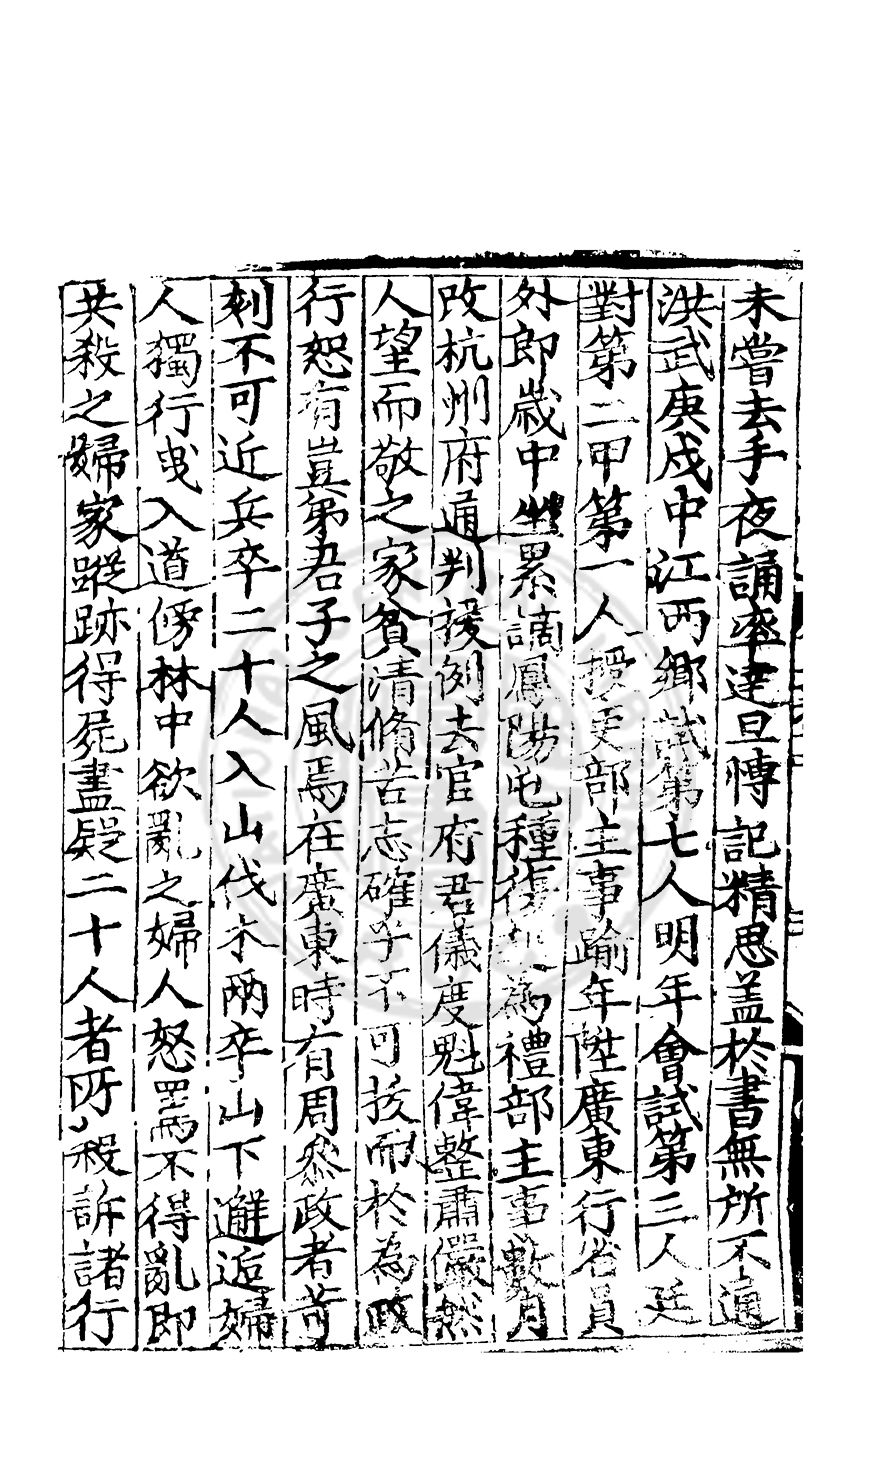 未嘗去手夜誦率達旦慱記精思盖於書無所不通
洪武庚戍中江西鄉試第七人明年會試第三人廷
對第二甲第一人授吏部主事踰年陞廣東行省員
外郎歲中坐累謫鳳陽屯種復起為禮部主事數月
改杭州府通判援例去官府君儀度魁偉整肅儼然
人望而敬之家貧清脩苦志確乎不可拔而於為政
行恕有豈弟君子之風焉在廣東時有周叅政者苛
刻不可近兵卒二十人入山伐木兩卒山下邂逅婦
人獨行曵入道傍林中欲亂之婦人怒罵不得亂即
共殺之婦家蹤跡得屍盡疑二十人者所殺訴諸行